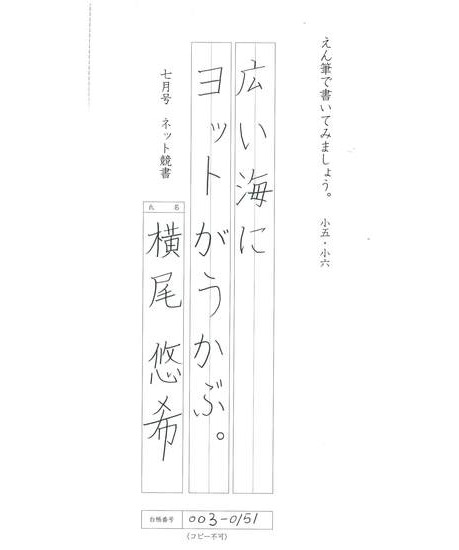 えん筆で書いてみましょう。 小五・小六
広い海に
ヨットがうかぶ。
七月号 ネット競書
氏名
横尾悠希
台帳番号 003-0151
(コピー不可)